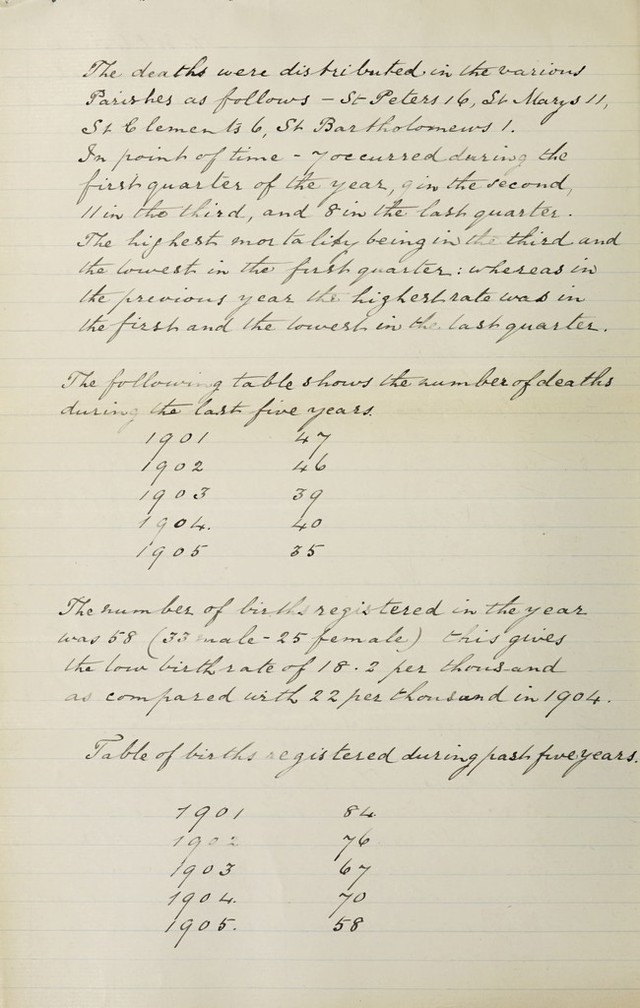 The deaths were distributed in the various
Parishes as follows - St Peters 16, St Marys 11,
St Clements 6, St Bartholomews 1.
In point of time - 7 occurred during the
first quarter of the year, 9 in the second,
11 in the third, and 8 in the last quarter.
The highest mortality being in the third and
the lowest in the first quarter: whereas in
the previous year the highest rate was in
the first and the lowest in the last quarter.
The following table shows the number of deaths
during the last five years.
1901 47
1902 46
1903 39
1904. 40
1905 35
The number of births registered in the year
was 58 (33 male - 25 female) this gives
the low birth rate of 18.2 per thousand
as compared with 22 per thousand in 1904.
Table of births registered during past five years.
1901 84
1902 76
1903 67
1904. 70
1905. 58